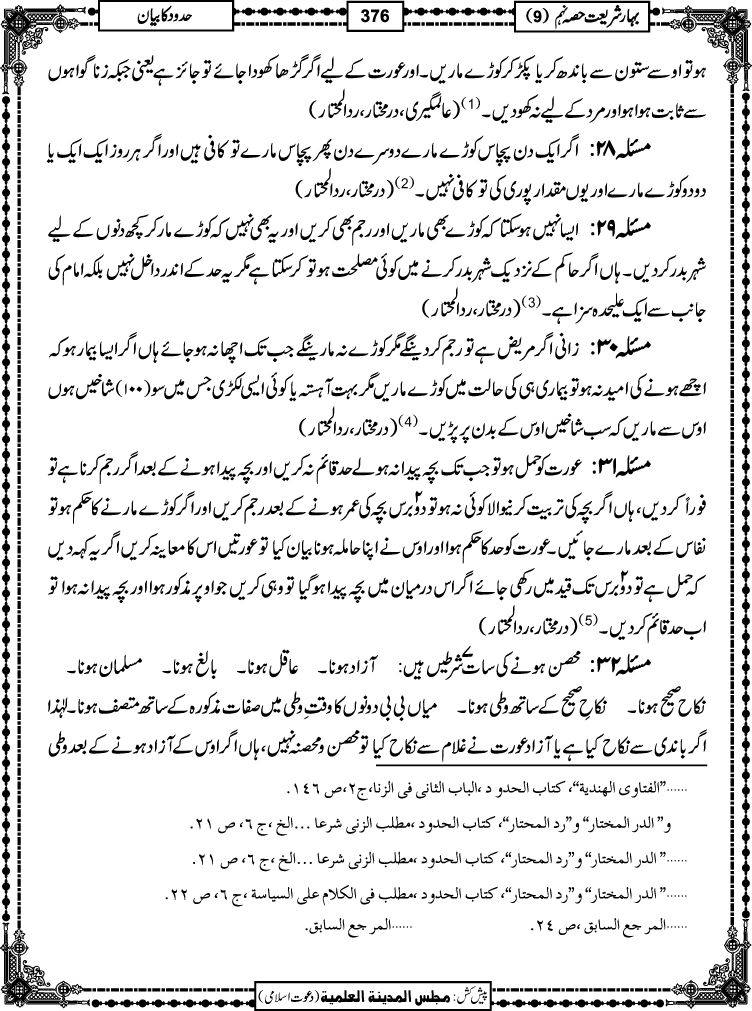 بہار شریعت حصہ نہم (9)
376
حدود کا بیان
ہو تو اوسے ستون سے باندھ کر یا پکڑ کر کوڑے ماریں۔ اور عورت کے لیے اگر گڑھا کھودا جائے تو جائز ہے یعنی جبکہ زنا گواہوں
سے ثابت ہوا ہو اور مرد کے لیے نہ کھودیں۔(1) (عالمگیری، درمختار، ردالمحتار)
مسئلہ ۲۸: اگر ایک دن پچاس کوڑے مارے دوسرے دن پھر پچاس مارے تو کافی ہیں اور اگر ہر روز ایک ایک یا
دو دو کوڑے مارے اور یوں مقدار پوری کی تو کافی نہیں۔(2) (درمختار، ردالمحتار)
مسئلہ ۲۹: ایسا نہیں ہوسکتا کہ کوڑے بھی ماریں اور رجم بھی کریں اور یہ بھی نہیں کہ کوڑے مار کر کچھ دنوں کے لیے
شہر بدر کر دیں۔ ہاں اگر حاکم کے نزدیک شہر بدر کرنے میں کوئی مصلحت ہو تو کرسکتا ہے مگر یہ حد کے اندر داخل نہیں بلکہ امام کی
جانب سے ایک علیحدہ سزا ہے۔(3) (درمختار، ردالمحتار)
مسئلہ ۳۰: زانی اگر مریض ہے تو رجم کر دینگے مگر کوڑے نہ مارینگے جب تک اچھا نہ ہو جائے ہاں اگر ایسا بیمار ہو کہ
اچھے ہونے کی امید نہ ہو تو بیماری ہی کی حالت میں کوڑے ماریں مگر بہت آہستہ یا کوئی ایسی لکڑی جس میں سو (۱۰۰) شاخیں ہوں
اوس سے ماریں کہ سب شاخیں اوس کے بدن پر پڑیں۔(4) (درمختار، ردالمحتار)
مسئلہ ۳۱: عورت کو حمل ہو تو جب تک بچہ پیدا نہ ہولے حد قائم نہ کریں اور بچہ پیدا ہونے کے بعد اگر رجم کرنا ہے تو
فوراً کر دیں، ہاں اگر بچہ کی تربیت کرنیوالا کوئی نہ ہو تو دو۲ برس بچہ کی عمر ہونے کے بعد رجم کریں اور اگر کوڑے مارنے کا حکم ہو تو
نفاس کے بعد مارے جائیں۔ عورت کو حد کا حکم ہوا اور اوس نے اپنا حاملہ ہونا بیان کیا تو عورتیں اس کا معاینہ کریں اگر یہ کہہ دیں
کہ حمل ہے تو دو۲ برس تک قید میں رکھی جائے اگر اس درمیان میں بچہ پیدا ہوگیا تو وہی کریں جو اوپر مذکور ہوا اور بچہ پیدا نہ ہوا تو
اب حد قائم کر دیں۔(5) (درمختار، ردالمحتار)
مسئلہ ۳۲: محصن ہونے کی سات۷ شرطیں ہیں: آزاد ہونا۔ عاقل ہونا۔ بالغ ہونا۔ مسلمان ہونا۔
نکاح صحیح ہونا۔ نکاح صحیح کے ساتھ وطی ہونا۔ میاں بی بی دونوں کا وقتِ وطی میں صفات مذکورہ کے ساتھ متصف ہونا۔ لہٰذا
اگر باندی سے نکاح کیا ہے یا آزاد عورت نے غلام سے نکاح کیا تو محصن و محصنہ نہیں، ہاں اگر اوس کے آزاد ہونے کے بعد وطی
......”الفتاوی الهندية“، كتاب الحدود، الباب الثانی فی الزنا، ج۲، ص ۱۴۶.
و” الدر المختار“ و”رد المحتار“، كتاب الحدود، مطلب الزنی شرعا ...الخ، ج ۶، ص ۲۱.
......” الدر المختار“ و”رد المحتار“، كتاب الحدود، مطلب الزنی شرعا ...الخ، ج ۶، ص ۲۱.
......” الدر المختار“ و”رد المحتار“، كتاب الحدود، مطلب فی الكلام علی السياسة، ج ۶، ص ۲۲.
......المرجع السابق، ص ۲۴. ......المرجع السابق.
پیش کش: مجلس المدينة العلمية (دعوت اسلامی)